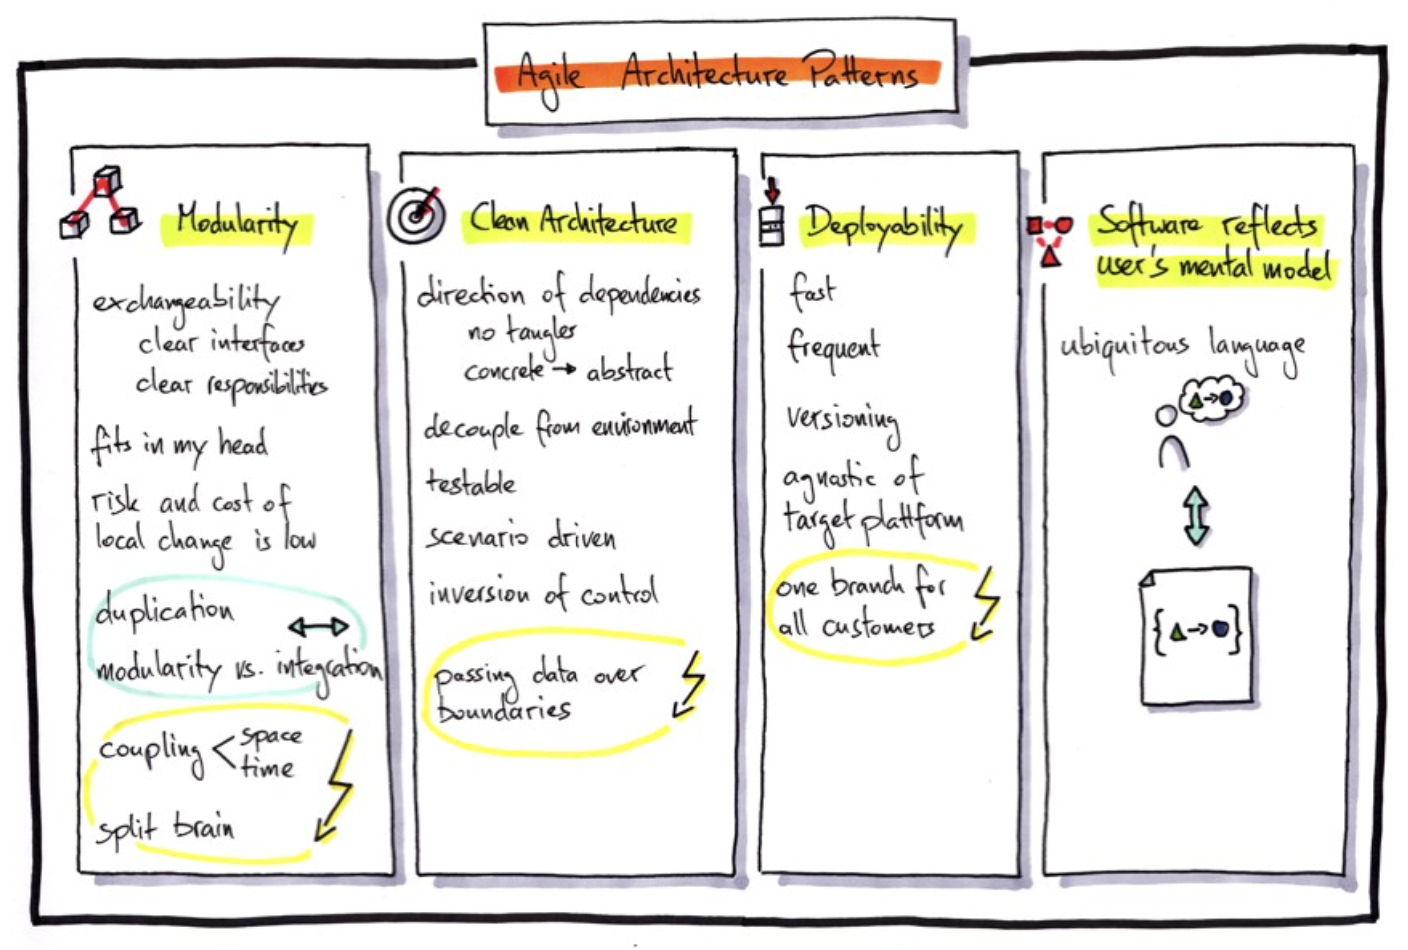 Agile Architecture Patterns
Modularity
exchangeability
clear interfaces
clear responsibilities
fits in my head
risk and cost of
local change is low
duplication
modularity vs. integration
coupling < space
time
split brain
Clean Architecture
direction of dependencies
no tangles
concrete → abstract
decouple from environment
testable
scenario driven
inversion of control
passing data over
boundaries
Deployability
fast
frequent
versioning
agnostic of
target plattform
one branch for
all customers
Software reflects
user's mental model
ubiquitous language
{ → }